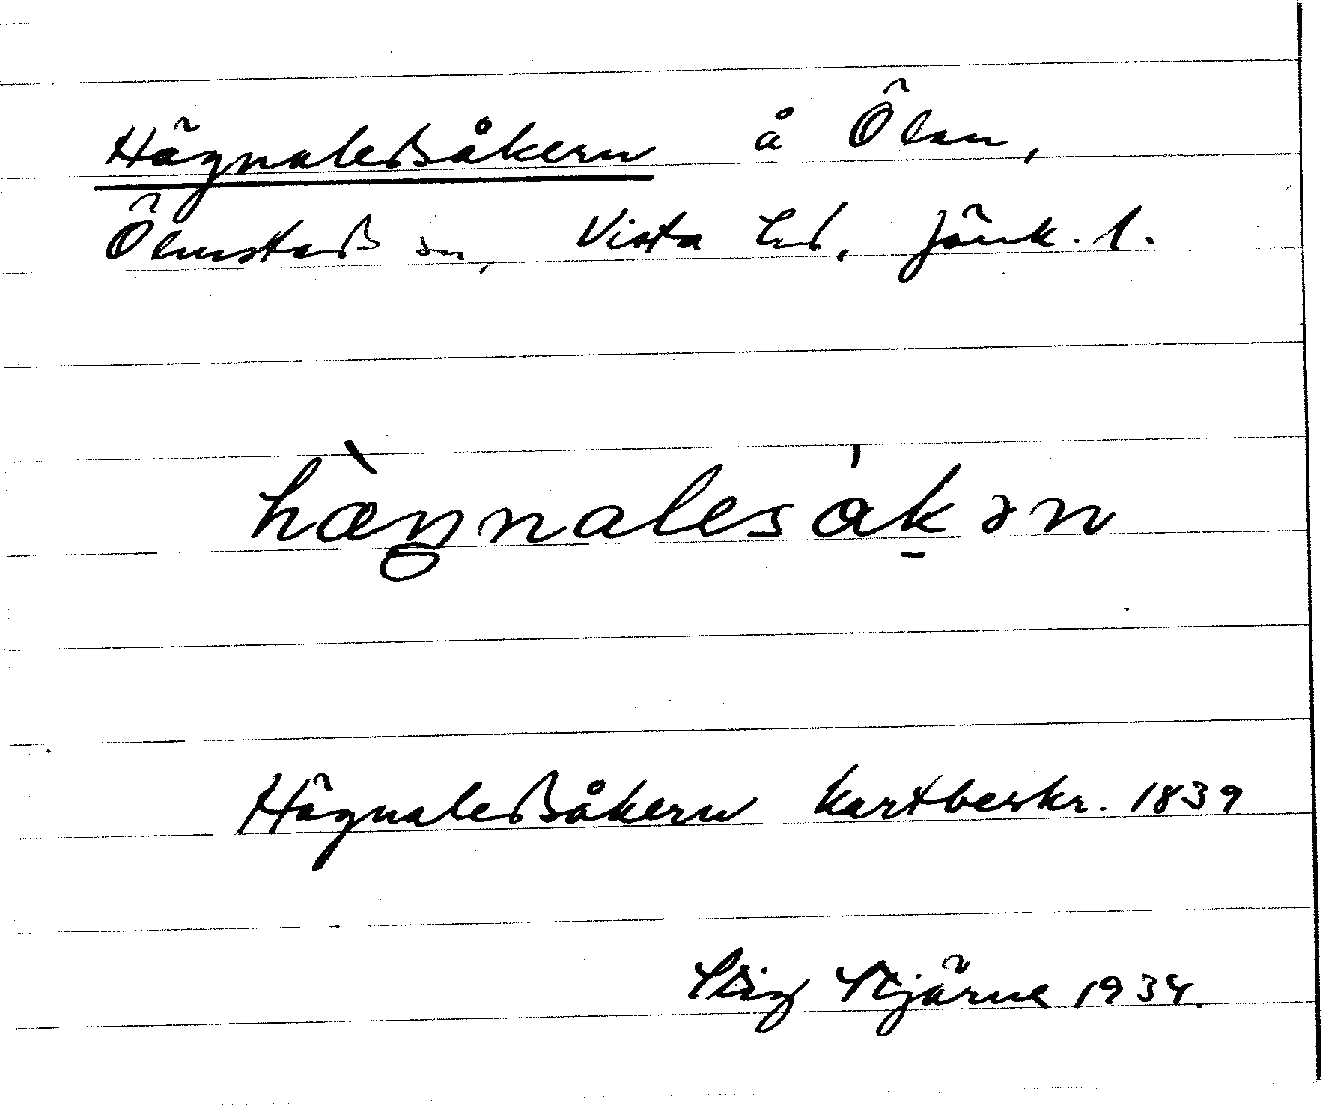 Hägnalebsåkern å Ölan,
Ölmstads sn, Vista hd, Jönk. l.
hæ̀ŋnalesåkən
Hägnalebsåkern kartbeskr. 1839
Stig Stjärne 1934.